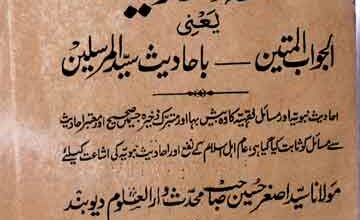 یعنی
الجواب المتین — باحادیث سید المرسلین
احادیث نبویہ اور مسائل فقہیہ کا وہ بیش بہا اور متبرک ذخیرہ جسمیں صحیح اور معتبر احادیث
سے مسائل کو ثابت کیا گیا ہی، عام اہل اسلام کے نفع اور احادیث نبویہ کی اشاعت کیلئے
مولانا سید اصغر حسین صاحب محدث دارالعلوم دیوبند